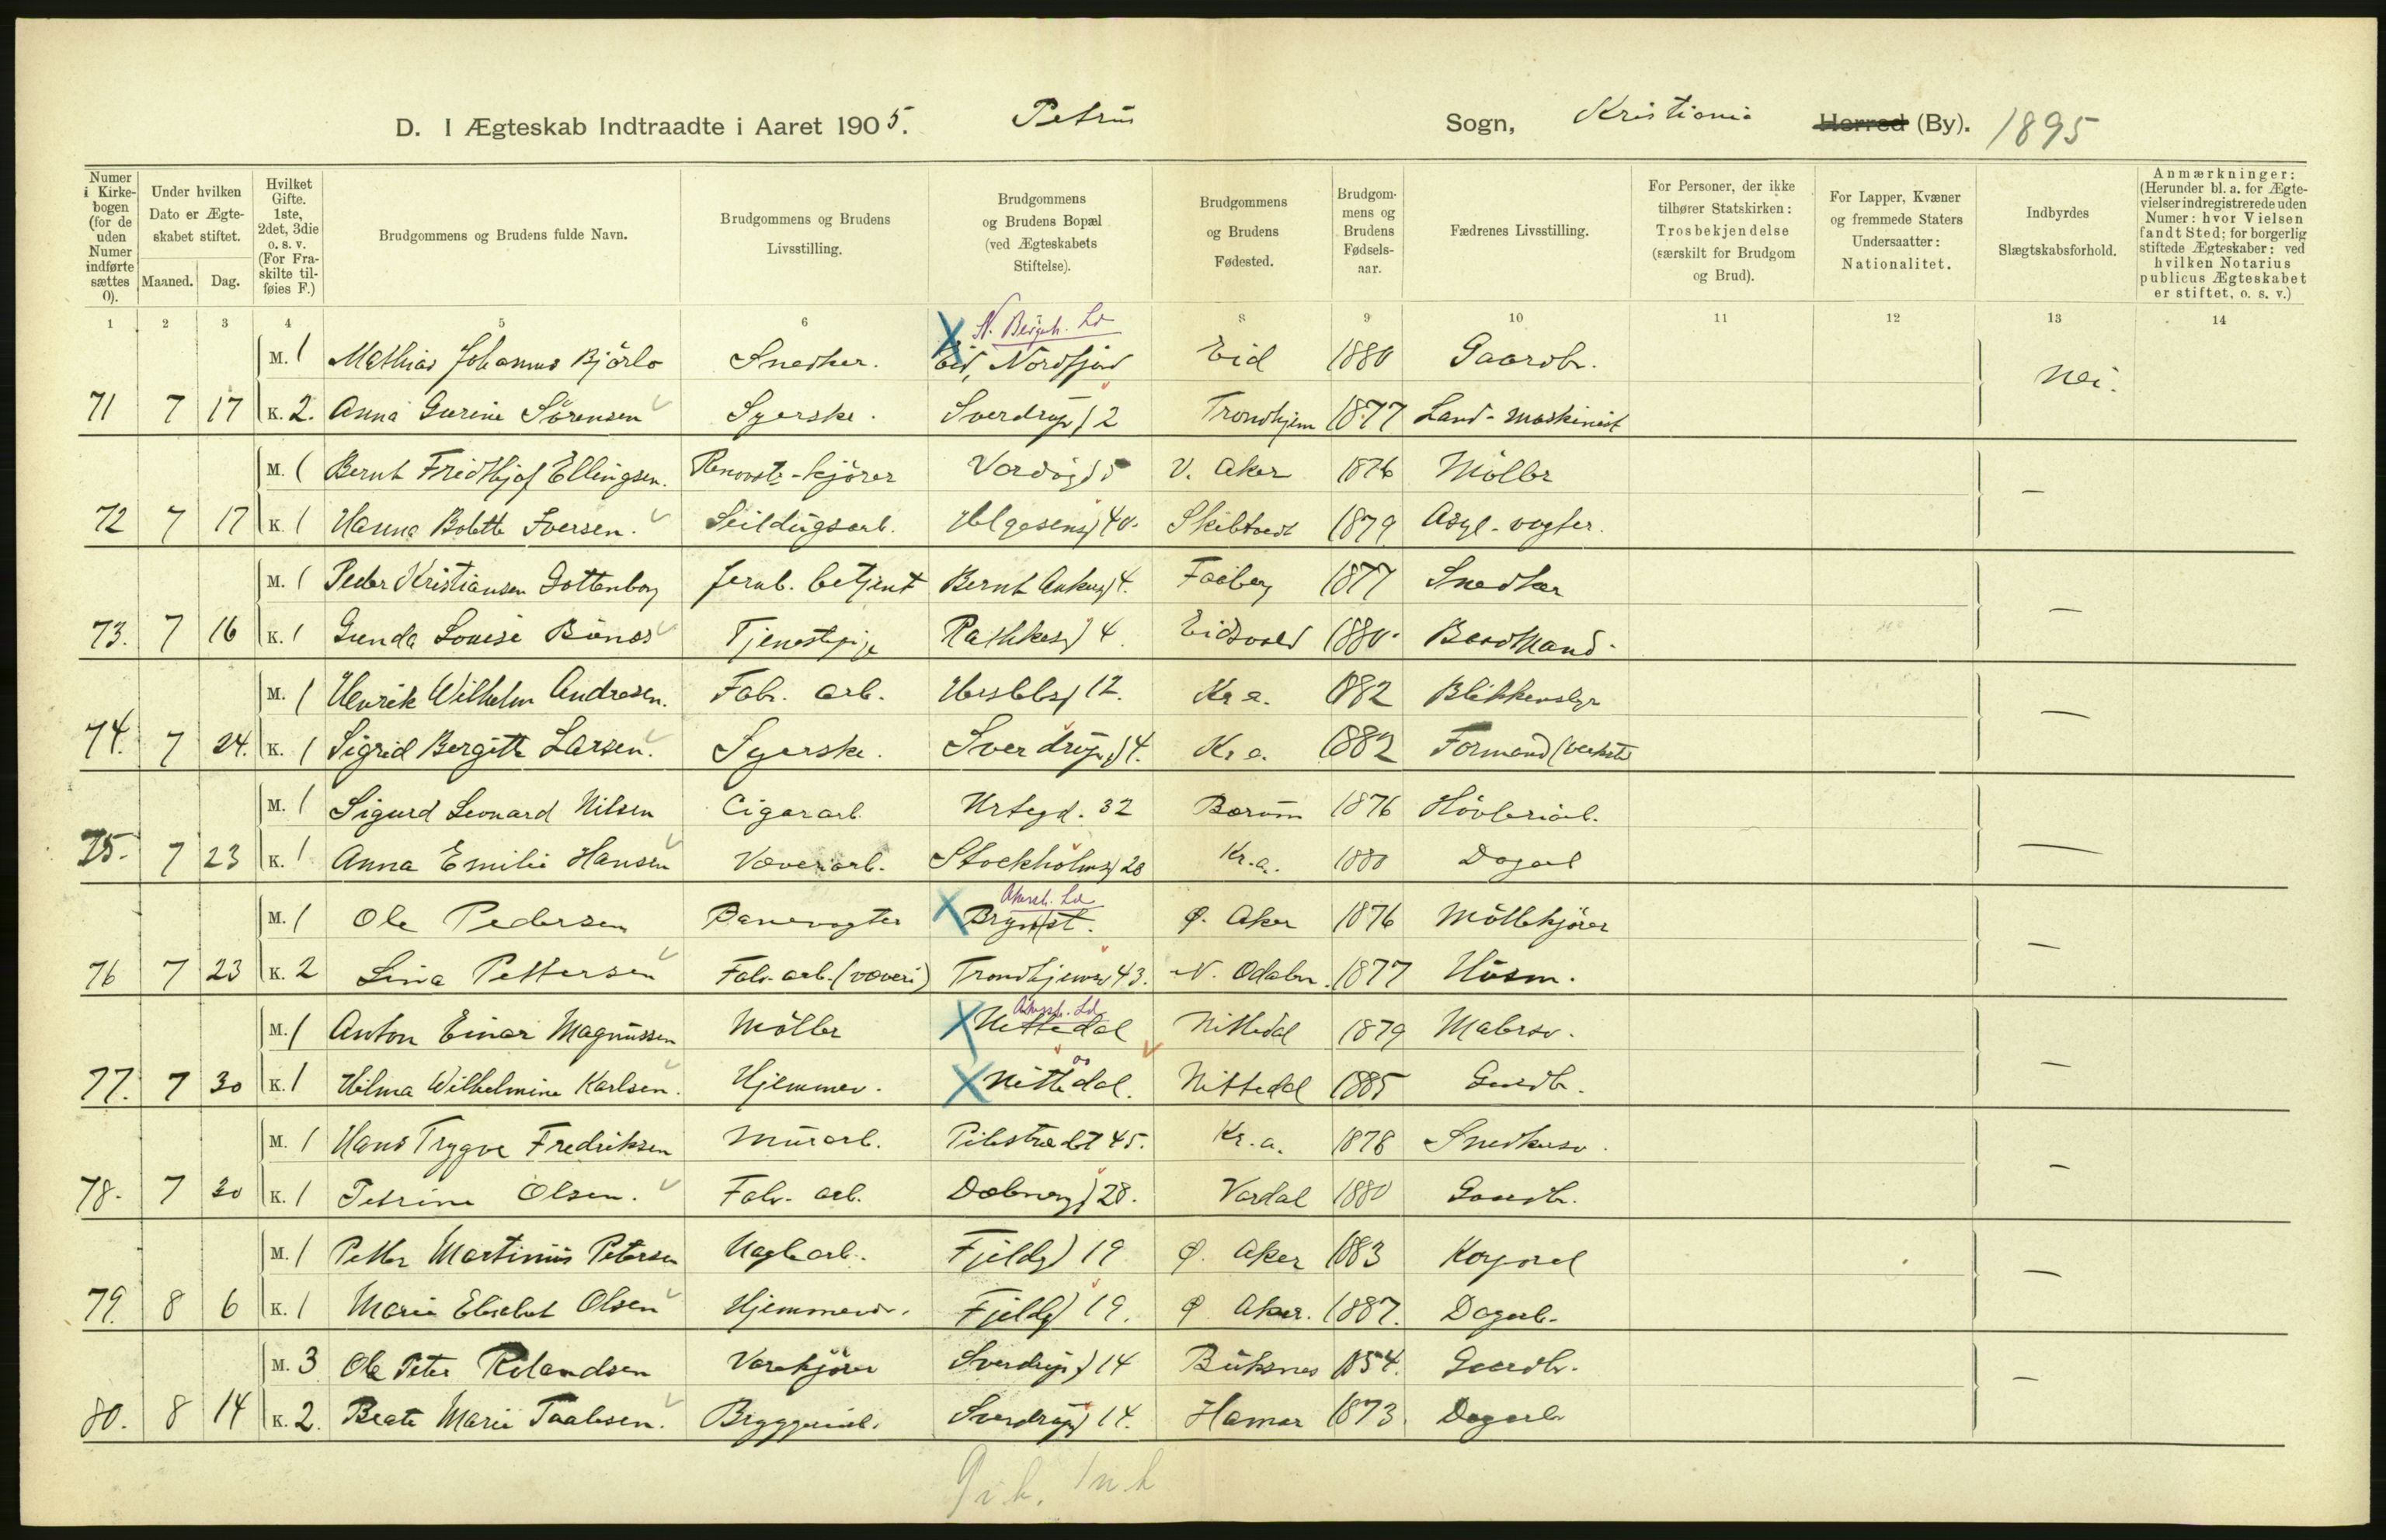 D. I Ægteskab Indtraadte i Aaret 1905. Petrus Sogn, Kristiania Herred (By). 1895
Numer i Kirkebogen (for de uden Numer indførte sættes 0).
Under hvilken Dato er Ægteskabet stiftet.
Maaned. Dag.
Hvilket Gifte. 1ste, 2det, 3die o. s. v. (For Fraskilte tilføies F.)
Brudgommens og Brudens fulde Navn.
Brudgommens og Brudens Livsstilling.
Brudgommens og Brudens Bopæl (ved Ægteskabets Stiftelse).
Brudgommens og Brudens Fødested.
Brudgommens og Brudens Fødselsaar.
Fædrenes Livsstilling.
For Personer, der ikke tilhører Statskirken: Trosbekjendelse (særskilt for Brudgom og Brud).
For Lapper, Kvæner og fremmede Staters Undersaatter: Nationalitet.
Indbyrdes Slægtskabsforhold.
Anmærkninger: (Herunder bl. a. for Ægtevielser indregistrerede uden Numer: hvor Vielsen fandt Sted; for borgerlig stiftede Ægteskaber: ved hvilken Notarius publicus Ægteskabet er stiftet, o. s. v.)
1 2 3 4 5 6 8 9 10 11 12 13 14
N. Bergh. Ld
M. 1 Mathias Johannes Bjørlo Snedker. Eid, Nordfjord Eid 1880 Gaardbr. Nei.
71 7 17 K. 2. Anna Gurine Sörensen Syerske. Sverdrupsg 2 Trondhjem 1877 Land-maskinist
M. 1 Bernt Fridthjof Ellingsen. Renovats-kjörer V. Aker 1876 Möller —
72 7 17 K. 1 Hanna Bolette Iversen. Seildugsarb. Helgesensg 40. Skibtvedt 1879 Asyl-vogter.
M. 1 Peder Kristiansen Jernb. betjent Bernt Ankersg 4. Faaberg 1877 Snedker —
73. 7 16 K. 1 Gunda Louise Tjenestpige Rathkesg 4. Eidsvold 1880
M. 1 Henrik Wilhelm Andresen. Fabr. arb. Herslebsg 12. Kr a. 1882 Blikkenslgr —
74. 7 24. K. 1 Sigrid Bergitte Larsen. Syerske. Sverdrupsg 4. Kr a. 1882 Formand
M. 1 Sigurd Leonard Nilsen Cigararb. Urtegd. 32 Bærum 1876 Hövleriarb. —
75. 7 23 K. 1 Anna Emilie Hansen Væveriarb. Stockholmsg 28 Kr.a. 1880 Dagarb
Akersh. Ld
M. 1 Ole Pedersen Banevogter Bryn st. Ø. Aker 1876 Möllekjörer —
76 7 23 K. 2 Lina Pettersen Fabr. arb. (væveri) Trondhjemsv 43. N. Odalen. 1877 Husm.
Akersh. Ld
M. 1 Anton Einar Magnussen Möller Nittedal Nittedal 1879 Malersv. —
77. 7 30 K. 1 Hilma Wilhelmine Karlsen. Hjemmev. Nittedal. Nittedal 1885 Gaardb.
M. 1 Hans Trygve Fredriksen Murarb. Pilestrædet 45. Kr.a. 1878 Snedkersv. —
78. 7 30 K. 1 Petrine Olsen. Fabr. arb. Dælenengg 28. Vardal 1880 Gaardb.
M. 1 Petter Martinius Petersen Naglearb. Fjeldg 19 Ø. Aker 1883 Korporal —
79. 8 6 K. 1 Marie Elisebet Olsen Hjemmev. Fjeldg 19. Ø Aker. 1887. Dagarb.
M. 3 Ole Peter Rolandsen Varekjörer Sverdrupsg 14 Buksnes 1854. Gaardb. —
80. 8 14 K. 2. Beate Marie Taalesen. Bryggeriarb. Sverdrupsg 14. Hamar 1873. Dagarb